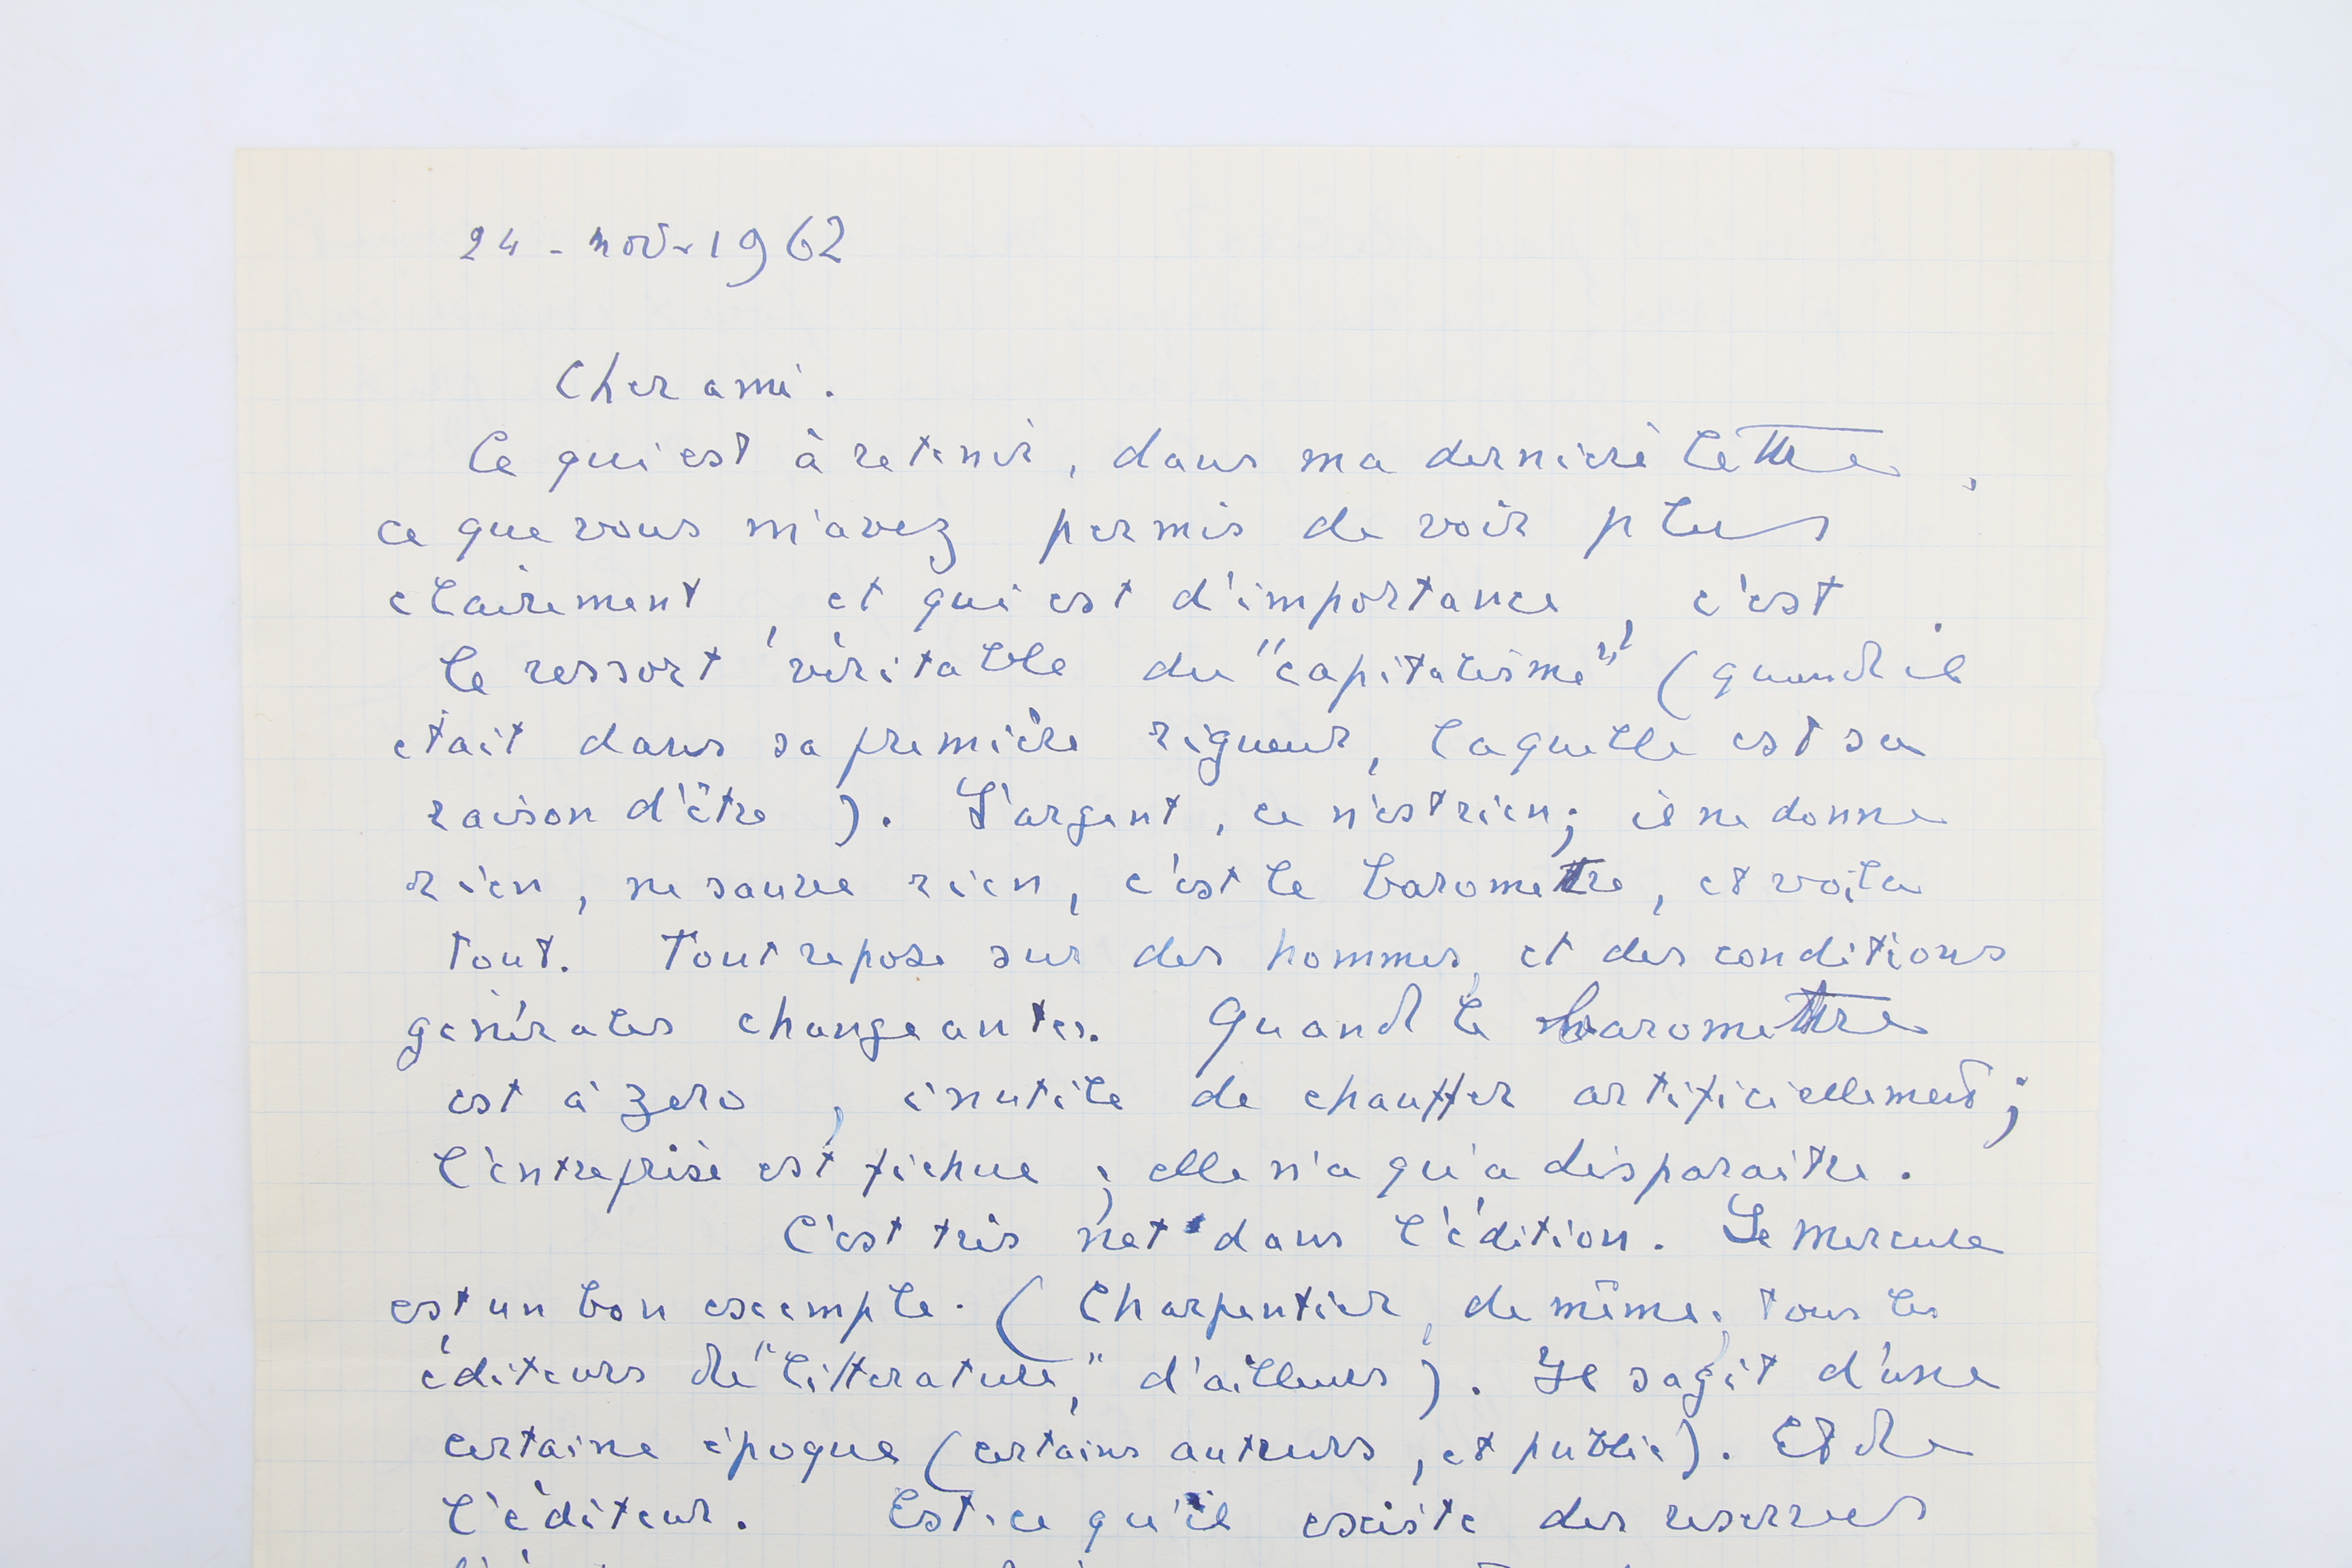 24 - nov - 1962
Cher ami.
Ce qui est à retenir, dans ma derniere lettre,
ce que vous m'avez permis de voir plus
clairement, et qui est d'importance, c'est
le ressort véritable du "capitalisme" (quand il
était dans sa première rigueur, laquelle est sa
raison d'être). L'argent, ce n'est rien; il ne donne
rien, ne sauve rien, c'est le barometre, et voila
tout. Tout repose sur des hommes, et des conditions
générales changeantes. Quand le barometre
est à zero, inutile de chauffer artificiellement;
l'entreprise est fichue; elle n'a qu'a disparaitre.
C'est très net dans l'édition. Le Mercure
est un bon exemple. (Charpentier, de même; tous les
éditeurs de "litterature," d'ailleurs). Il s'agit d'une
certaine époque (certains auteurs, et public). Et de
l'éditeur. Est-ce qu'il existe des reserves